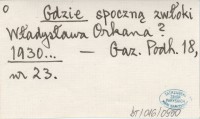 o
Gdzie spoczną zwłoki
Władysława Orkana?
1930... — Gaz. Podh. 18,
nr 23.
bt/016/0500